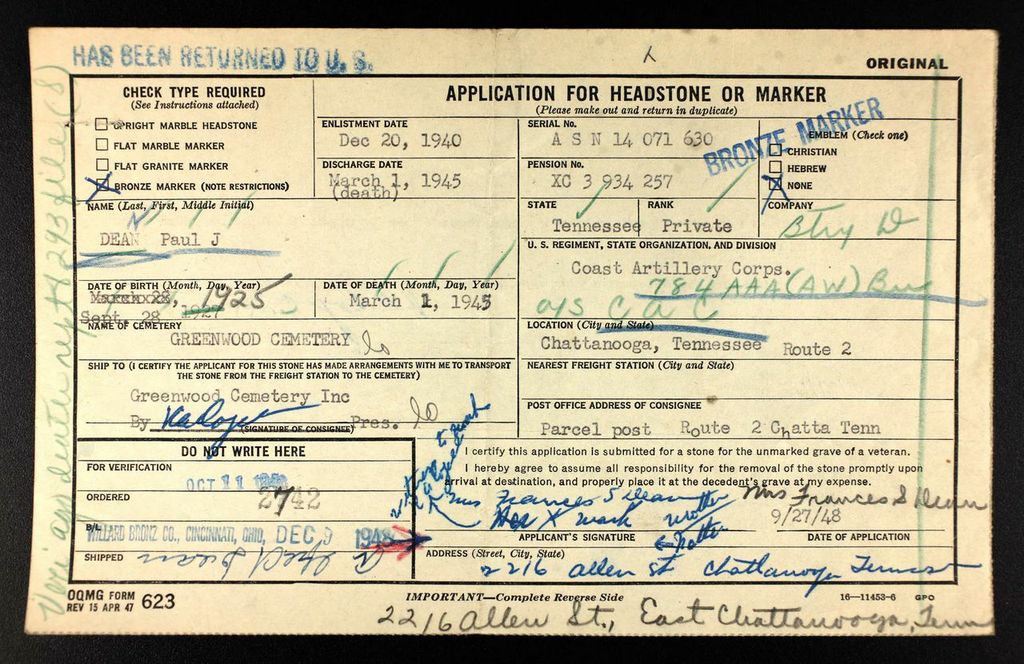 HAS BEEN RETURNED TO U. S.
ORIGINAL
CHECK TYPE REQUIRED
(See Instructions attached)
UPRIGHT MARBLE HEADSTONE
FLAT MARBLE MARKER
FLAT GRANITE MARKER
X BRONZE MARKER (NOTE RESTRICTIONS)
APPLICATION FOR HEADSTONE OR MARKER
(Please make out and return in duplicate)
ENLISTMENT DATE
Dec 20, 1940
DISCHARGE DATE
March 1, 1945
(death)
SERIAL No.
A S N 14 071 630
PENSION No.
XC 3 934 257
BRONZE MARKER
EMBLEM (Check one)
CHRISTIAN
HEBREW
X NONE
STATE
Tennessee
RANK
Private
COMPANY
Btry D
NAME (Last, First, Middle Initial)
DEAN Paul J
U. S. REGIMENT, STATE ORGANIZATION, AND DIVISION
Coast Artillery Corps.
784 AAA (AW) Bn
a/s C a C
DATE OF BIRTH (Month, Day, Year)
1925
Sept. 28 1927
DATE OF DEATH (Month, Day, Year)
March 1, 1945
NAME OF CEMETERY
GREENWOOD CEMETERY
LOCATION (City and State)
Chattanooga, Tennessee Route 2
SHIP TO (I CERTIFY THE APPLICANT FOR THIS STONE HAS MADE ARRANGEMENTS WITH ME TO TRANSPORT
THE STONE FROM THE FREIGHT STATION TO THE CEMETERY)
Greenwood Cemetery Inc
By Pres.
(SIGNATURE OF CONSIGNEE)
NEAREST FREIGHT STATION (City and State)
POST OFFICE ADDRESS OF CONSIGNEE
Parcel post Route 2 Chatta Tenn
DO NOT WRITE HERE
FOR VERIFICATION
OCT 11 1948
ORDERED
2742
B/L
WILLARD BRONZ CO., CINCINNATI, OHIO, DEC 9 1948
SHIPPED
I certify this application is submitted for a stone for the unmarked grave of a veteran.
I hereby agree to assume all responsibility for the removal of the stone promptly upon
arrival at destination, and properly place it at the decedent's grave at my expense.
Mrs Frances S Dean mother Mrs Frances S Dean
Her X mark
9/27/48
APPLICANT'S SIGNATURE
DATE OF APPLICATION
ADDRESS (Street, City, State)
2216 allen st Chattanooga Tenness
OQMG FORM 623
REV 15 APR 47
IMPORTANT—Complete Reverse Side
16—11453-6 GPO
2216 Allen St., East Chattanooga, Tenn